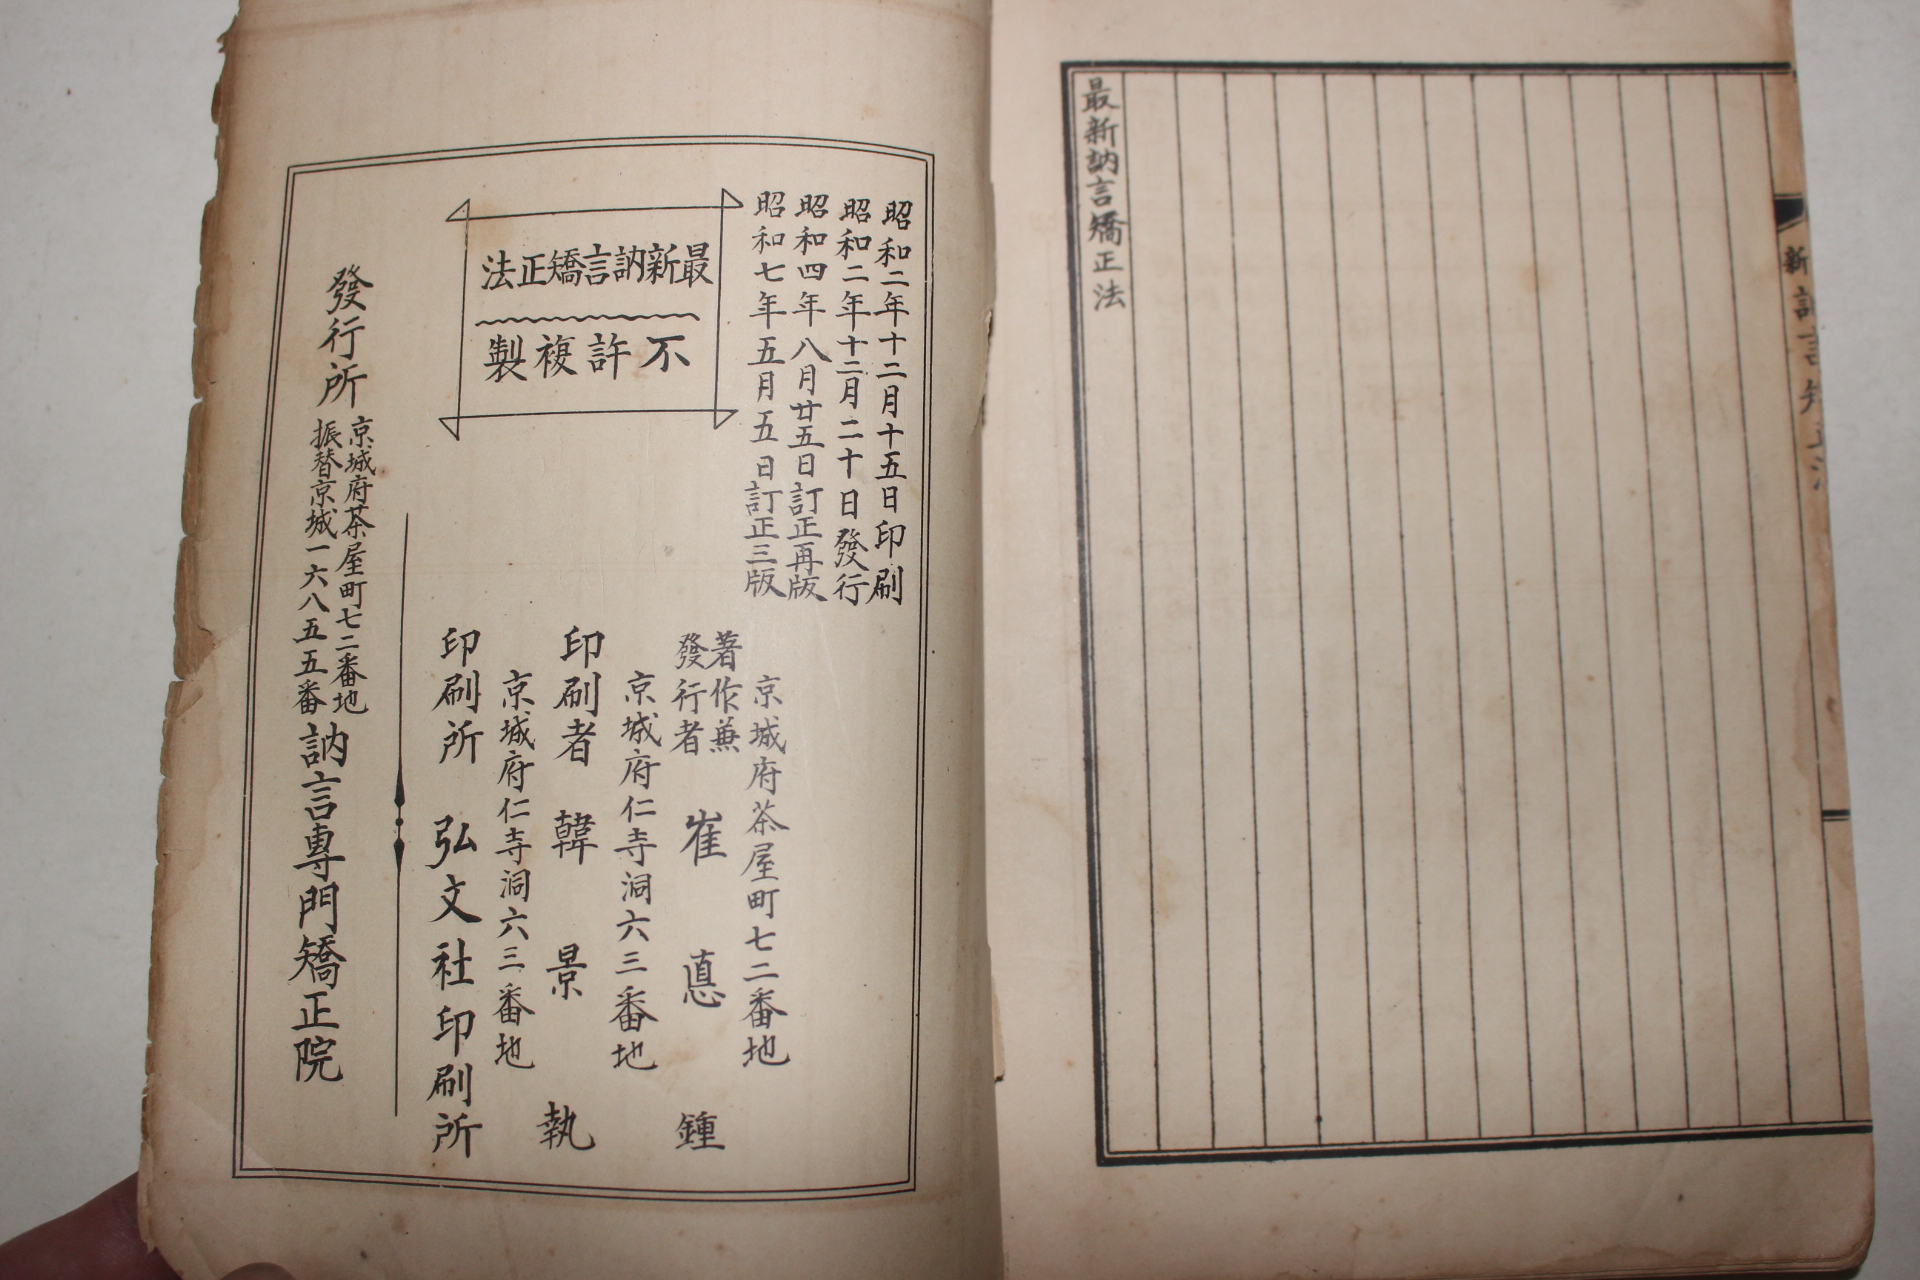 最新訥言矯正法
昭和二年十二月十五日印刷
昭和二年十二月二十日發行
昭和四年八月廿五日訂正再版
昭和七年五月五日訂正三版
最新訥言矯正法
不許複製
京城府茶屋町七二番地
著作兼
發行者
崔 悳 鍾
京城府仁寺洞六三番地
印刷者 韓 景 執
京城府仁寺洞六三番地
印刷所 弘文社印刷所
發行所
京城府茶屋町七二番地
振替京城一六八五五番
訥言專門矯正院